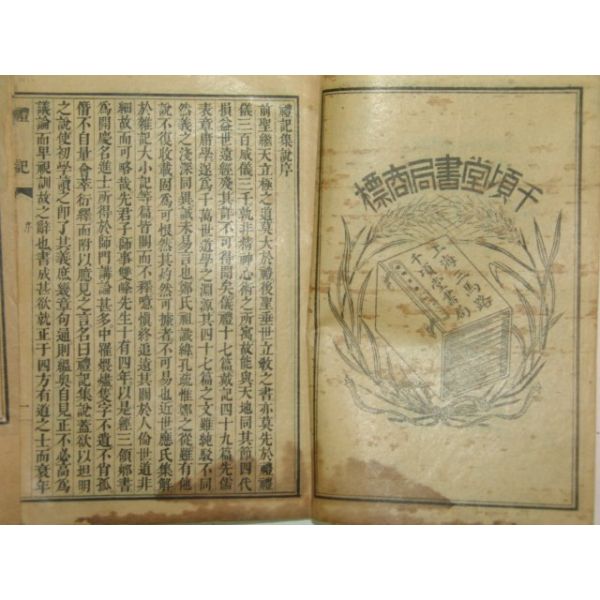 千頃堂書局商標
上海三馬路
千頃堂書局
禮記集說序
前聖繼天立極之道莫大於禮後聖垂世立敎之書亦莫先於禮禮
儀三百威儀三千孰非精神心術之所寓故能與天地同其節四代
損益世遠經殘其詳不可得聞矣儀禮十七篇戴記四十九篇先儒
表章庸學遂爲千萬世道學之淵源其四十七篇之文雖純駁不同
然義之淺深同異誠未易言也鄭氏祖讖緯孔疏惟鄭之從雖有他
說不復收載固爲可恨然其灼然可據者不可易也近世應氏集解
於雜記大小記等篇皆闕而不釋噫愼終追遠其關於人倫世道非
細故而可略哉先君子師事雙峰先生十有四年以是經三領鄕書
爲開慶名進士所得於師門講論甚多中罹煨燼隻字不遺不肖孤
僭不自量會萃衍繹而附以臆見之言名曰禮記集說蓋欲以坦明
之說使初學讀之即了其義庶幾章句通則蘊奧自見正不必高爲
議論而卑視訓故之辭也書成甚欲就正于四方有道之士而衰年
禮記 序 一